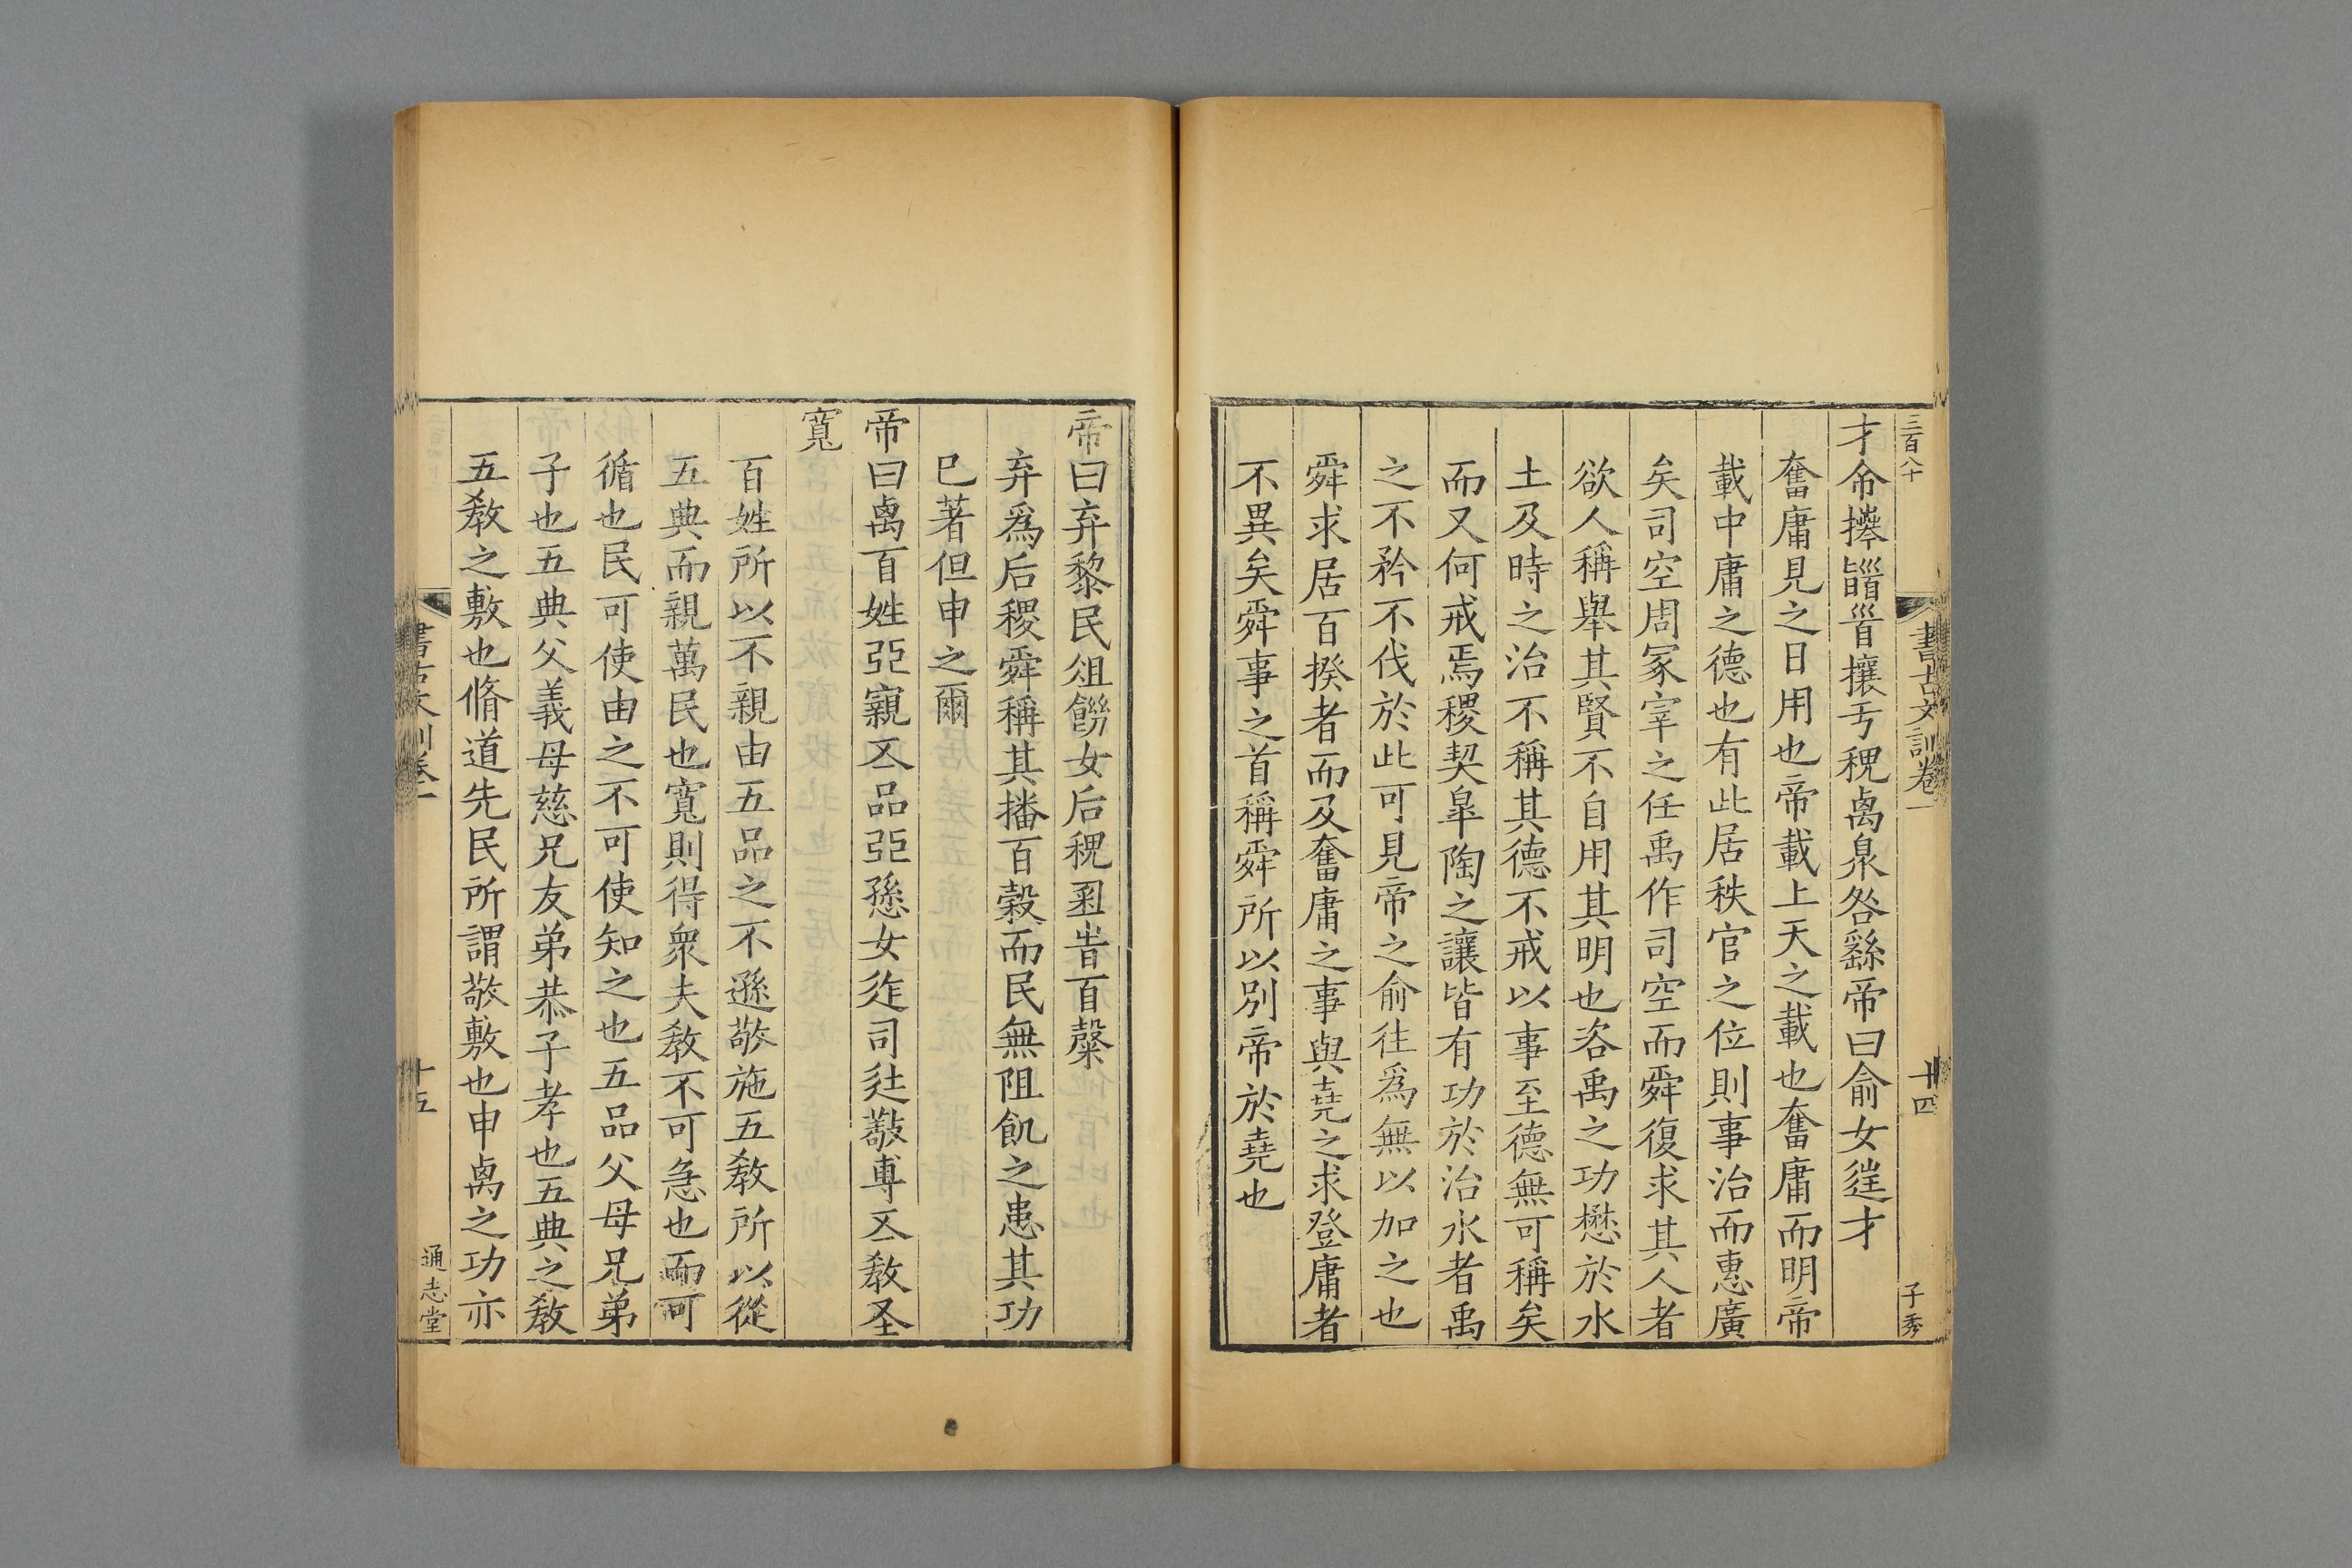 三百八十
書古文訓卷一
十四
子秀
才命𢷎𩒨𩠐攘于稷卨臮咎繇帝曰俞女𨑭才
奮庸見之日用也帝載上天之載也奮庸而明帝
載中庸之德也有此居秩官之位則事治而惠廣
矣司空周冢宰之任禹作司空而舜復求其人者
欲人稱舉其賢不自用其明也咨禹之功懋於水
土及時之治不稱其德不戒以事至德無可稱矣
而又何戒焉稷契皐陶之讓皆有功於治水者禹
之不矜不伐於此可見帝之俞往為無以加之也
舜求居百揆者而及奮庸之事與堯之求登庸者
不異矣舜事之首稱舜所以別帝於堯也
帝曰弃黎民俎餝女后稷𡇈旹百穀
弃爲后稷舜稱其播百穀而民無阻飢之患其功
已著但申之爾
帝曰卨百姓亞寴𠄡品亞愻女𨒌司𨑒𢽟尃𠄡教圣
寬
百姓所以不親由五品之不遜敬施五教所以從
五典而親萬民也寬則得衆夫教不可急也而可
循也民可使由之不可使知之也五品父母兄弟
子也五典父義母慈兄友弟恭子孝也五典之教
五教之敷也脩道先民所謂敬敷也申卨之功亦
書古文訓卷一
十五
通志堂